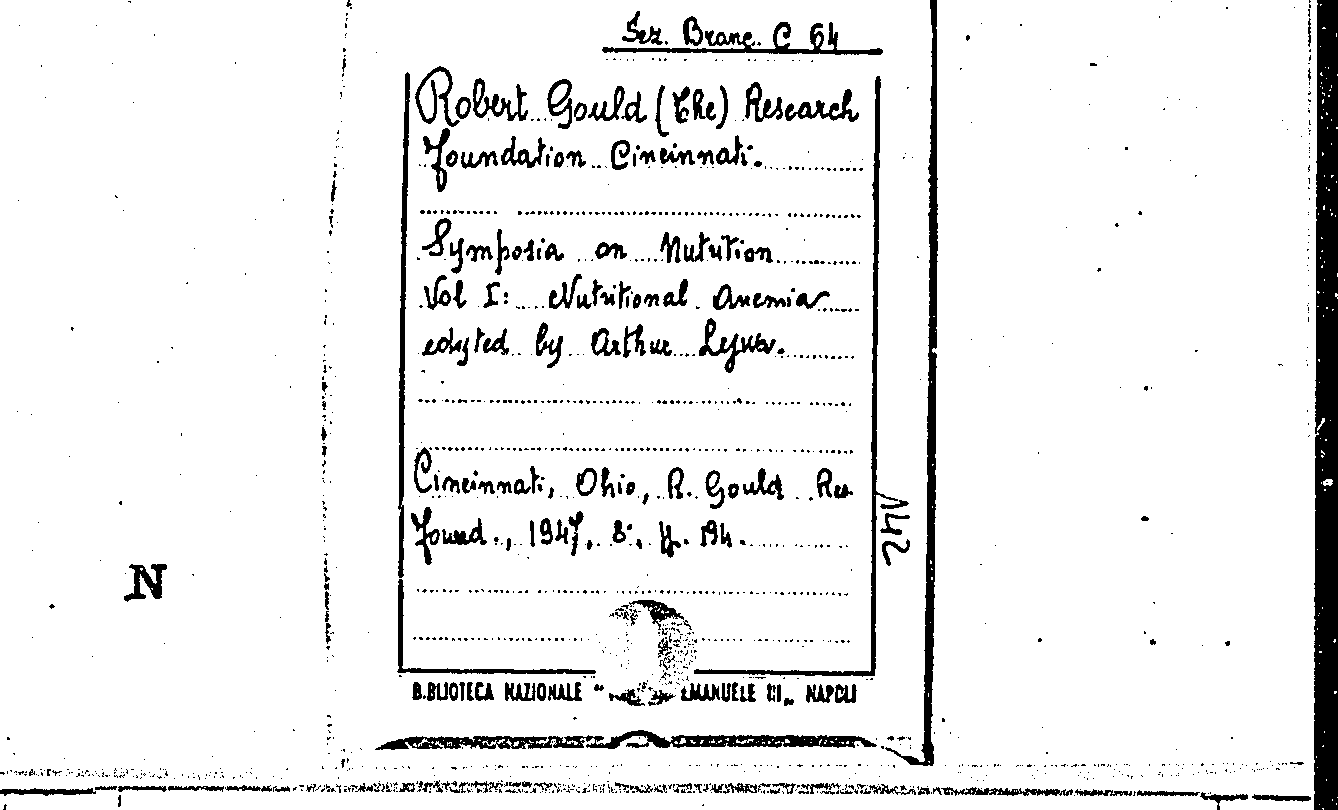 Sez. Branc. C 64
Robert Gould (The) Research
Foundation Cincinnati.
Symposia on Nutrition
Vol I: Nutritional Anemia
edyted by Arthur
Cincinnati, Ohio, R. Gould Res
Found., 1947, 8°, 194.
142
N
BIBLIOTECA NAZIONALE " EMANUELE III„ NAPOLI